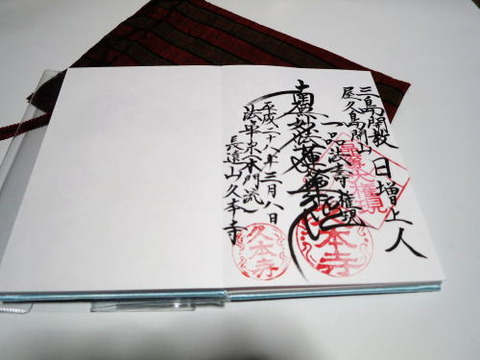 三島開教
屋久島開山
日増上人
一品法寿権現
南無妙法蓮華経
平成二十八年三月八日
法華宗本門流
長遠山久本寺
久本寺